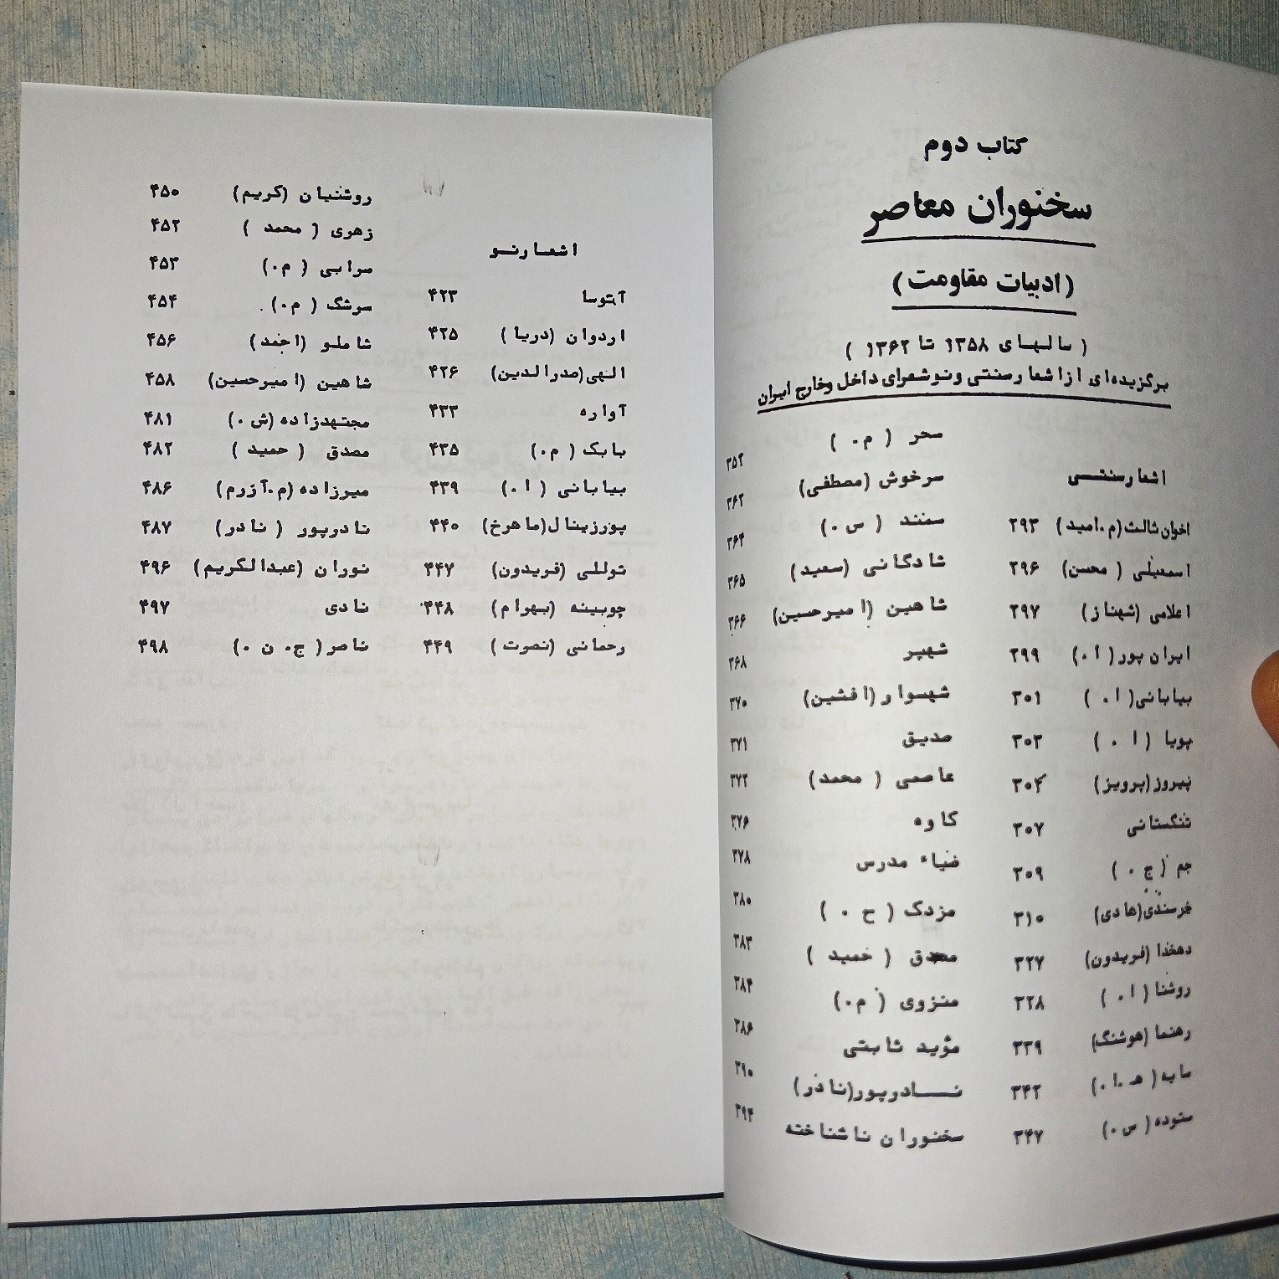 کتاب دوم
سخنوران معاصر
(ادبیات مقاومت)
( سالهای ۱۳۵۸ تا ۱۳۶۲ )
برگزیده‌ای از اشعار سنتی و نو شعرای داخل و خارج ایران
اشعار سنتی
اخوان ثالث (م.امید) ۲۹۳
اسمعیلی ( محسن) ۲۹۶
اعلامی (شهناز) ۲۹۷
ایران پور ( ا.) ۲۹۹
بیابانی ( ا. ) ۳۰۱
پویا ( ا . ) ۳۰۳
پیروز (پرویز) ۳۰۴
تنگستانی ۳۰۷
جم (ج . ) ۳۰۹
خرسندی (هادی) ۳۱۰
دهخدا (فریدون) ۳۲۷
روشنا ( ا. ) ۳۲۸
رهنما (هوشنگ) ۳۳۹
سایه ( ه .ا. ) ۳۴۲
ستوده ( س. ) ۳۴۷
سحر ( م. ) ۳۵۴
سرخوش (مصطفی) ۳۶۲
سمند ( س. ) ۳۶۴
شادگانی (سعید) ۳۶۵
شاهین (امیرحسین) ۳۶۶
شهپر ۳۶۸
شهسوار (افشین) ۳۷۰
صدیق ۳۷۱
عاصمی ( محمد) ۳۷۲
کاوه ۳۷۶
ضیاء مدرس ۳۷۸
مزدک ( ح . ) ۳۸۰
مصدق ( حمید ) ۳۸۳
منزوی ( م.) ۳۸۴
مؤید ثابتی ۳۸۶
نادرپور (نادر) ۳۹۰
سخنوران ناشناخته ۳۹۴
اشعار نو
آتوسا ۴۲۳
اردوان (دریا ) ۴۲۵
الهی (صدرالدین) ۴۲۶
آواره ۴۳۳
بابک ( م.) ۴۳۵
بیابانی ( ا.) ۴۳۹
پورزینال (ماهرخ) ۴۴۰
توللی (فریدون) ۴۴۷
چوبینه (بهرام ) ۴۴۸
رحمانی (نصرت ) ۴۴۹
روشنیان (کریم) ۴۵۰
زهری ( محمد ) ۴۵۲
سرابی ( م.) ۴۵۳
سرشگ ( م.) ۴۵۴
شاملو (احمد) ۴۵۶
شاهین (امیرحسین) ۴۵۸
مجتهدزاده (ش .) ۴۸۱
مصدق ( حمید ) ۴۸۲
میرزاده (م.آزرم) ۴۸۶
نادرپور ( نادر) ۴۸۷
نوران (عبدالکریم ) ۴۹۶
نادی ۴۹۷
ناصر ( ج. ن . ) ۴۹۸